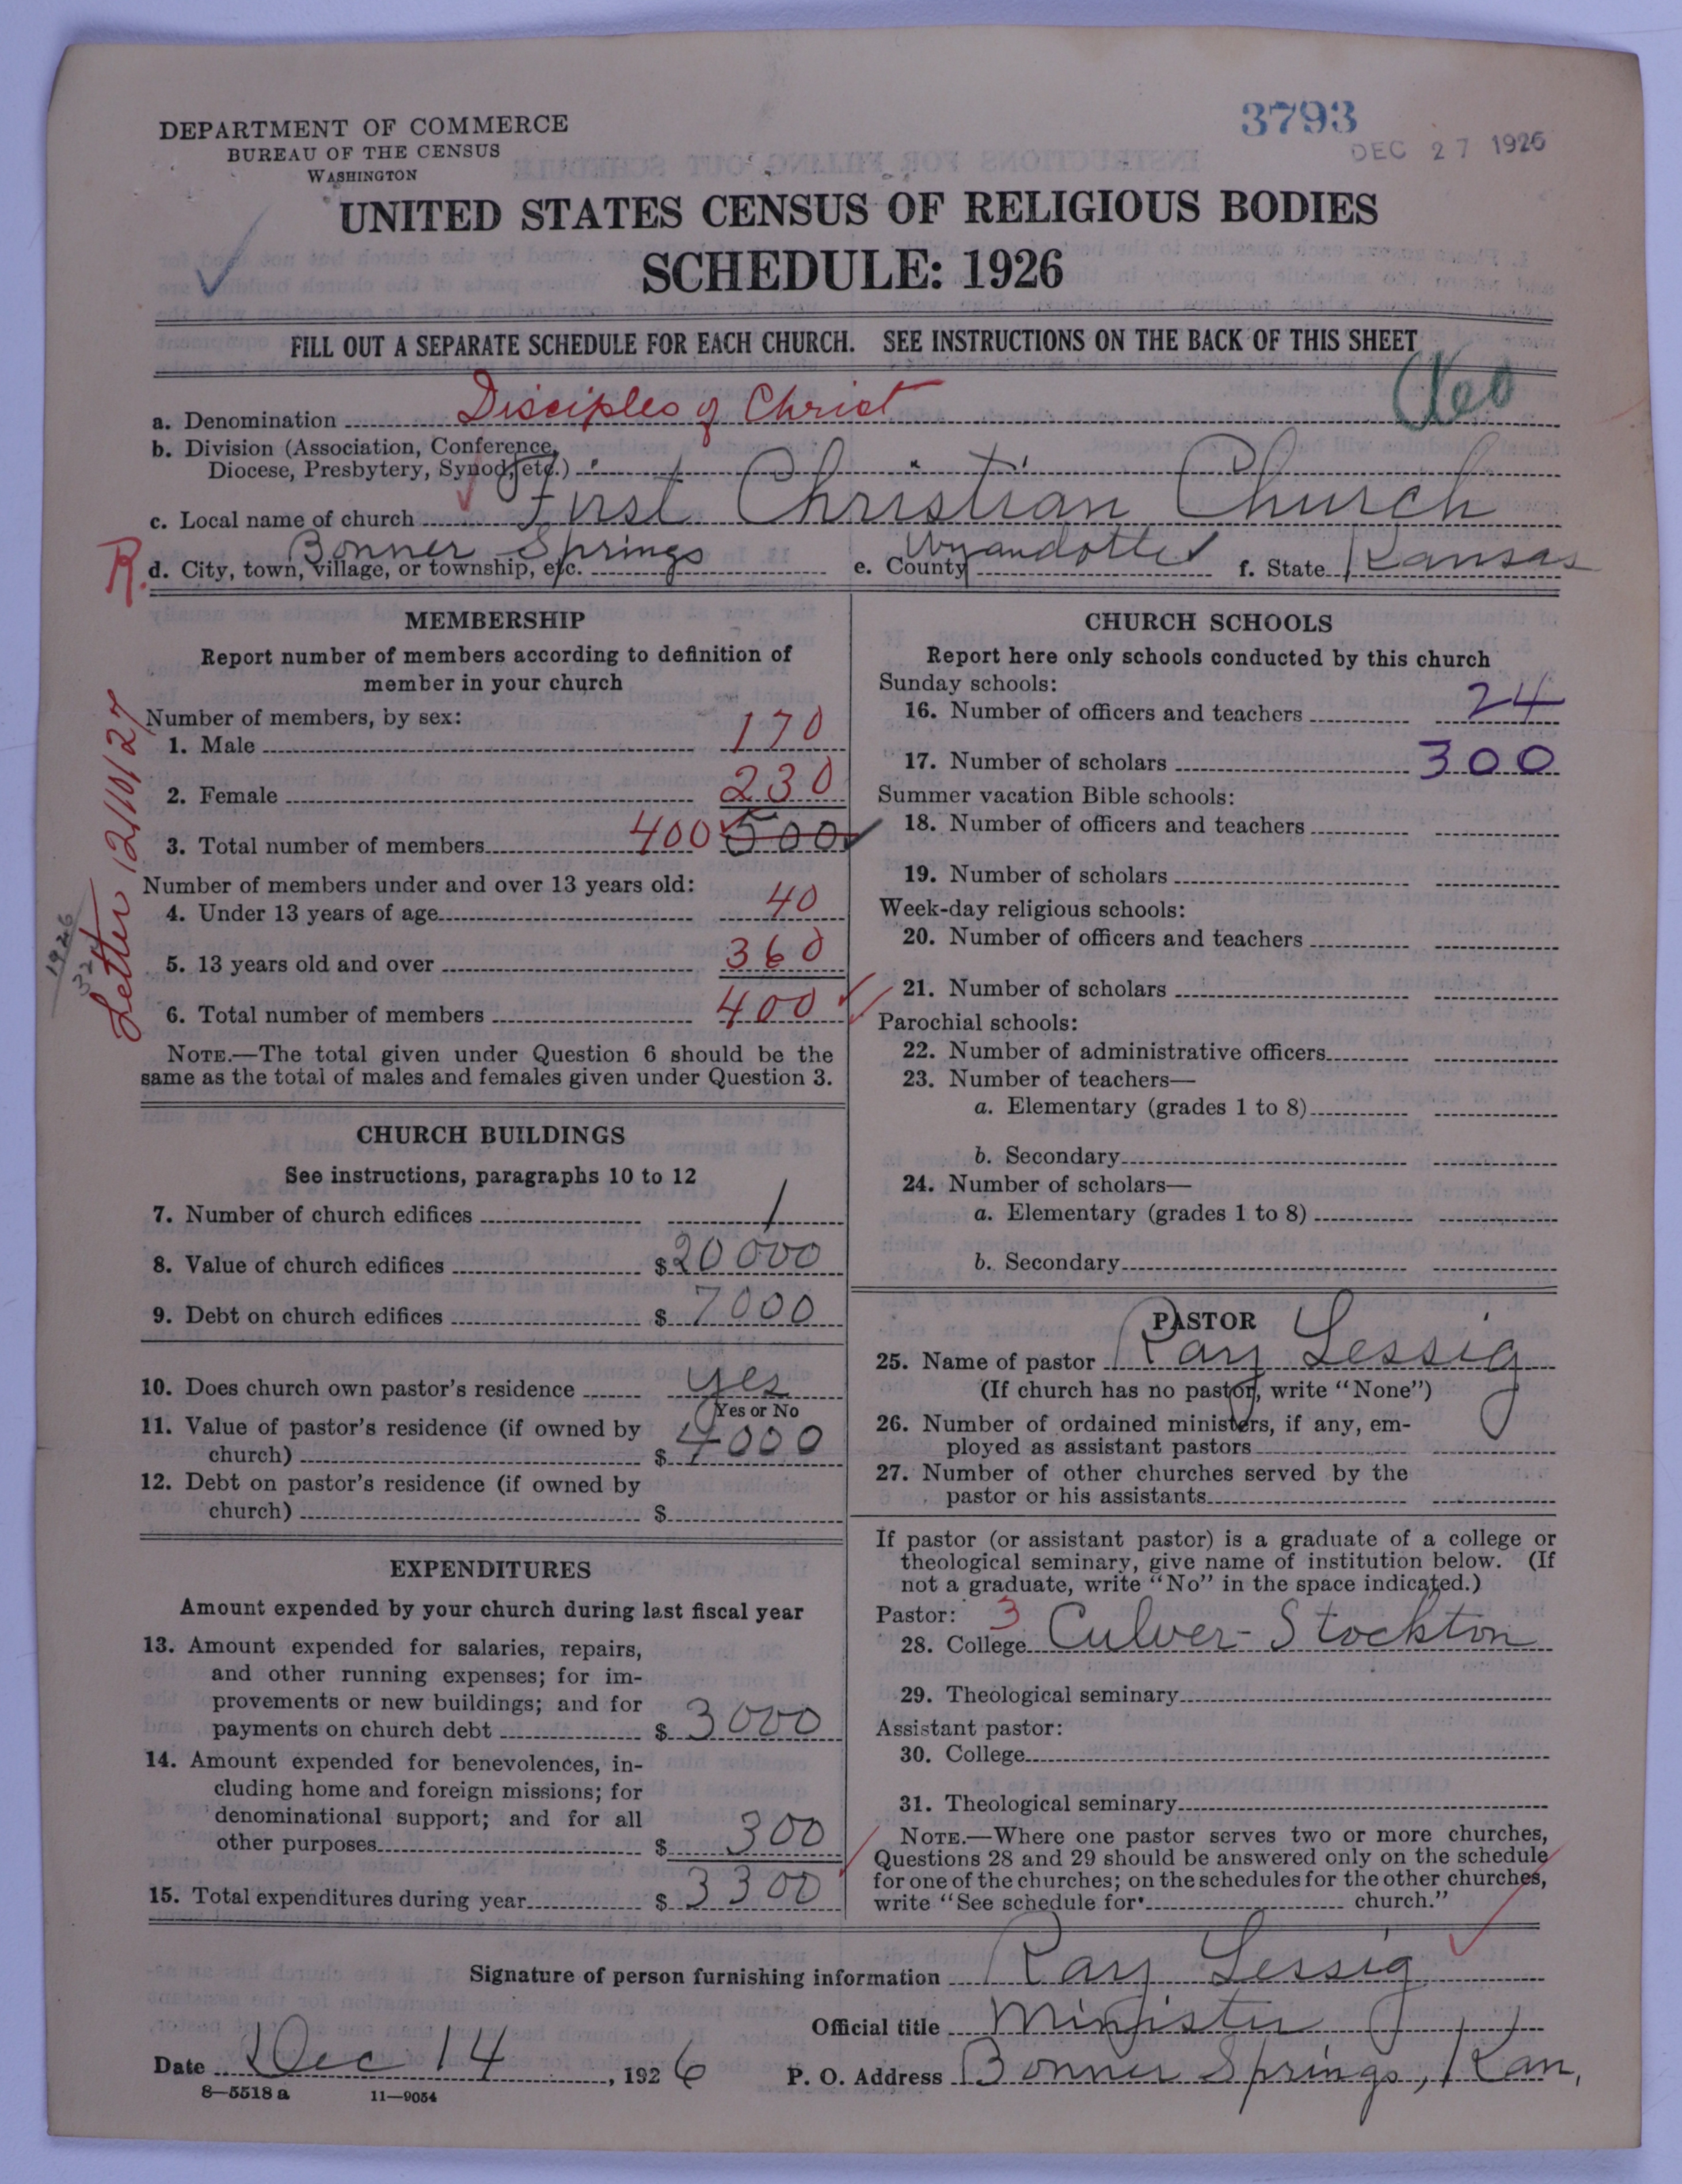 3793
DEC 27 1926
DEPARTMENT OF COMMERCE
BUREAU OF THE CENSUS
WASHINGTON
UNITED STATES CENSUS OF RELIGIOUS BODIES
SCHEDULE: 1926
FILL OUT A SEPARATE SCHEDULE FOR EACH CHURCH. SEE INSTRUCTIONS ON THE BACK OF THIS SHEET
a. Denomination Disciples of Christ
b. Division (Association, Conference,
Diocese, Presbytery, Synod, etc.)
c. Local name of church First Christian Church
R. d. City, town, village, or township, etc. Bonner Springs e. County Wyandotte f. State Kansas
Letter 12/10/27
1926
MEMBERSHIP
Report number of members according to definition of
member in your church
Number of members, by sex:
1. Male 170
2. Female 230
3. Total number of members 400 500
Number of members under and over 13 years old:
4. Under 13 years of age 40
5. 13 years old and over 360
6. Total number of members 400
NOTE.—The total given under Question 6 should be the
same as the total of males and females given under Question 3.
CHURCH BUILDINGS
See instructions, paragraphs 10 to 12
7. Number of church edifices 1
8. Value of church edifices $20000
9. Debt on church edifices $7000
10. Does church own pastor's residence yes
Yes or No
11. Value of pastor's residence (if owned by
church) $4000
12. Debt on pastor's residence (if owned by
church) $
EXPENDITURES
Amount expended by your church during last fiscal year
13. Amount expended for salaries, repairs,
and other running expenses; for im-
provements or new buildings; and for
payments on church debt $3000
14. Amount expended for benevolences, in-
cluding home and foreign missions; for
denominational support; and for all
other purposes $300
15. Total expenditures during year $3300
CHURCH SCHOOLS
Report here only schools conducted by this church
Sunday schools:
16. Number of officers and teachers 24
17. Number of scholars 300
Summer vacation Bible schools:
18. Number of officers and teachers
19. Number of scholars
Week-day religious schools:
20. Number of officers and teachers
21. Number of scholars
Parochial schools:
22. Number of administrative officers
23. Number of teachers—
a. Elementary (grades 1 to 8)
b. Secondary
24. Number of scholars—
a. Elementary (grades 1 to 8)
b. Secondary
PASTOR
25. Name of pastor Ray Lessig
(If church has no pastor, write "None")
26. Number of ordained ministers, if any, em-
ployed as assistant pastors
27. Number of other churches served by the
pastor or his assistants
If pastor (or assistant pastor) is a graduate of a college or
theological seminary, give name of institution below. (If
not a graduate, write "No" in the space indicated.)
Pastor: 3
28. College Culver-Stockton
29. Theological seminary
Assistant pastor:
30. College
31. Theological seminary
NOTE.—Where one pastor serves two or more churches,
Questions 28 and 29 should be answered only on the schedule
for one of the churches; on the schedules for the other churches,
write "See schedule for church."
Signature of person furnishing information Ray Lessig
Official title Minister
Date Dec 14, 1926 P. O. Address Bonner Springs, Kan,
8—5518 a 11—9054